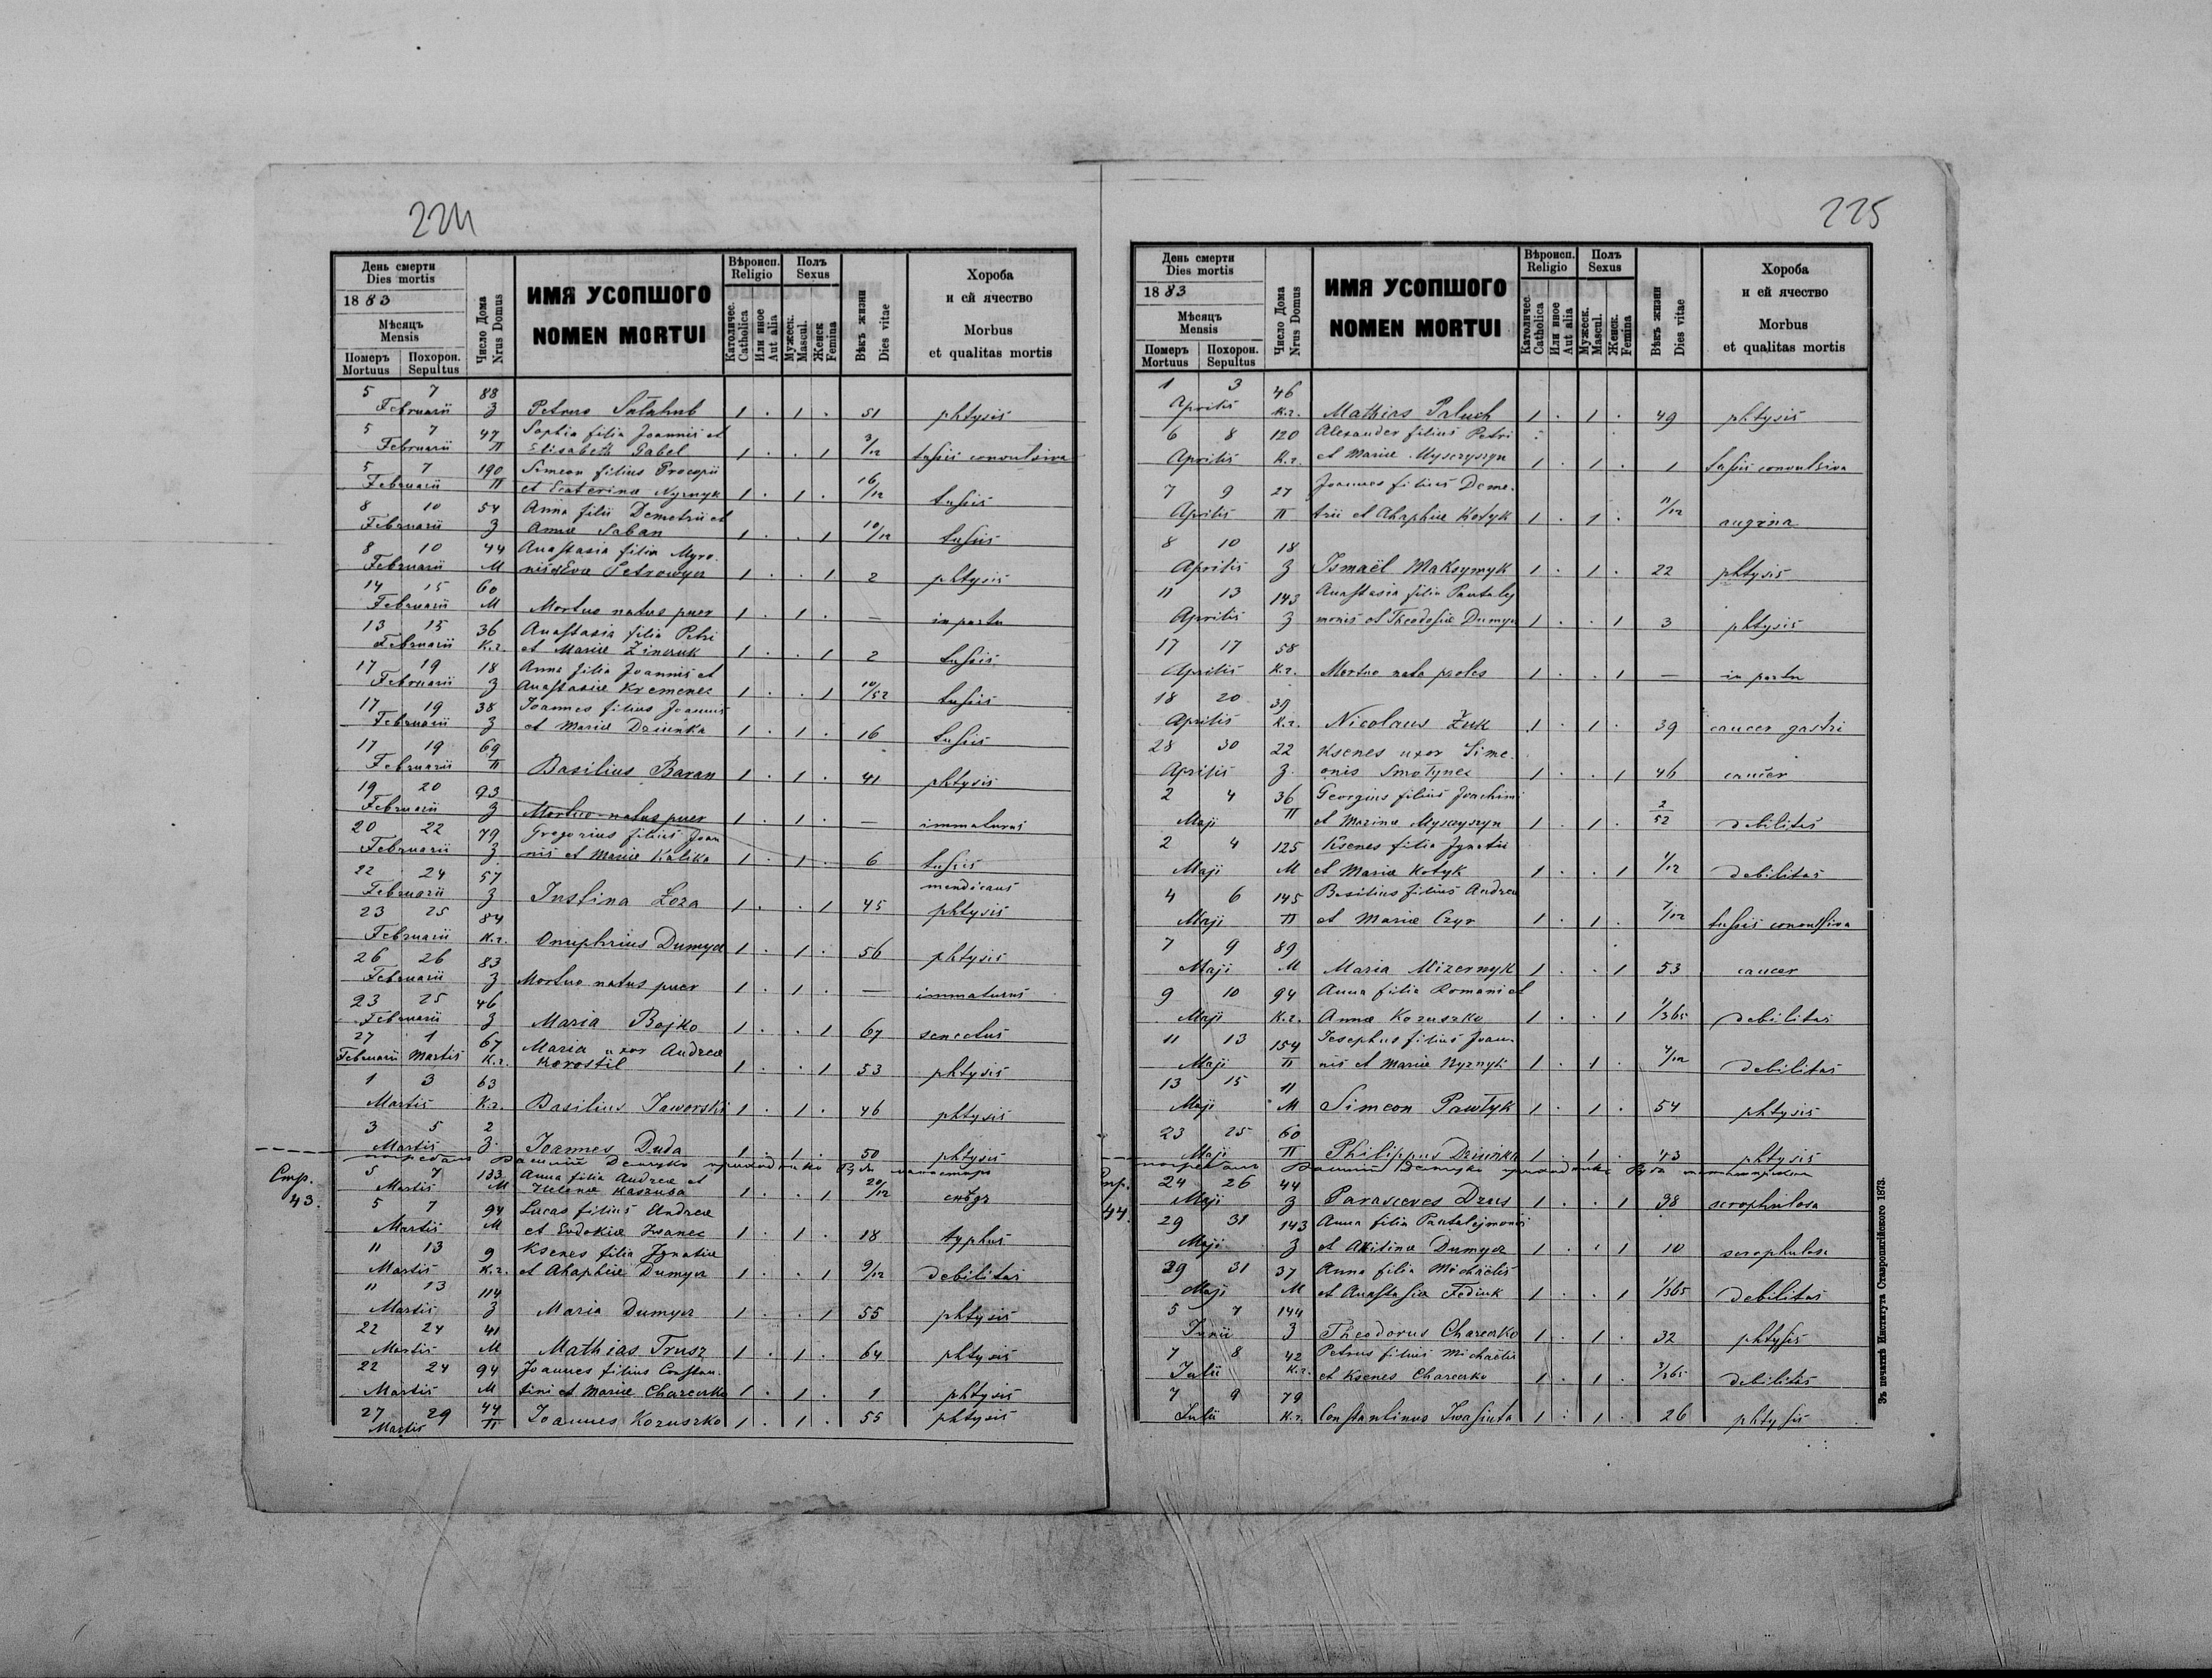 224
День смерти
Dies mortis
1883
Мѣсяць
Mensis
Померъ Похорон.
Mortuus Sepultus
Число Дома
Nrus Domus
ИМЯ УСОПШОГО
NOMEN MORTUI
Вѣроисп.
Religio
Католичес.
Catholica
Или иное
Aut alia
Полъ
Sexus
Мужеск.
Mascul.
Женск.
Femina
Вѣкъ жизни
Dies vitae
Хороба
и ей ячество
Morbus
et qualitas mortis
5 7 88
Februarii З Petrus 1 . 1 . 51 phtysis
5 7 47 Sophia filia Joannis et
Februarii П Elisabeth Gabel 1 . . 1 /12 tussis convulsiva
5 7 190 Simeon filius Procopii
Februarii П et Ecaterina Nyrnyk 1 . 1 . 16/12 tussis
8 10 54 Anna filii Demetrii et
Februarii З Annæ Saban 1 . . 1 10/12 tussis
8 10 44 Anastasia filia Myro
Februarii М nis et Eva Petrowycz 1 . . 1 2 phtysis
14 15 60
Februarii М Mortus natus puer 1 . 1 . — in partu
13 15 36 Anastasia filia Petri
Februarii К.г. et Mariæ Zinczuk 1 . . 1 2 tussis
17 19 18 Anna filia Joannis et
Februarii З Anastasiæ Kremenec 1 . . 1 10/52 tussis
17 19 38 Joannes filius Joannis
Februarii З et Mariæ Dziunka 1 . 1 . 16 tussis
17 19 69
Februarii П Basilius Baran 1 . 1 . 41 phtysis
19 20 93
Februarii З Mortuo natus puer 1 . 1 . — immaturus
20 22 79 Gregorius filius Joan
Februarii З nis et Mariæ Kalika 1 . 1 . 6 tussis
22 24 57 mendicans
Februarii З Justina Loza 1 . . 1 45 phtysis
23 25 84
Februarii К.г. Onuphrius Dumycz 1 . 1 . 56 phtysis
26 26 83
Februarii З Mortuo natus puer 1 . 1 . — immaturus
23 25 46
Februarii З Maria Bojko 1 . . 1 67 senectus
27 1 67 Maria uxor Andreæ
Februarii Martis К.г. Korostil 1 . . 1 53 phtysis
1 3 63
Martis К.г. Basilius Jaworski 1 . 1 . 46 phtysis
3 5 2
Martis З. Joannes Duda 1 . 1 . 50 phtysis
5 7 133 Anna filia Andreæ et
Martis М Helenæ Kaszuba 1 . . 1 20/12
Стр.
43.
5 7 94 Lucas filius Andreæ
Martis М et Eudokiæ Iwanec 1 . 1 . 18 typhus
11 13 9 Ksenes filia Ignatiæ
Martis К.г. et Ahaphiæ Dumycz 1 . . 1 9/12 debilitas
11 13 114
Martis З Maria Dumycz 1 . . 1 55 phtysis
22 24 41
Martis М Mathias Trusz 1 . 1 . 64 phtysis
22 24 94 Joannes filius Constan.
Martis М tini et Mariæ Charczko 1 . 1 . 1 phtysis
27 29 44
Martis П Joannes Kozuszko 1 . 1 . 55 phtysis
225
День смерти
Dies mortis
1883
Мѣсяць
Mensis
Померъ Похорон.
Mortuus Sepultus
Число Дома
Nrus Domus
ИМЯ УСОПШОГО
NOMEN MORTUI
Вѣроисп.
Religio
Католичес.
Catholica
Или иное
Aut alia
Полъ
Sexus
Мужеск.
Mascul.
Женск.
Femina
Вѣкъ жизни
Dies vitae
Хороба
и ей ячество
Morbus
et qualitas mortis
1 3 46
Aprilis К.г. Mathias Paluch 1 . 1 . 49 phtysis
6 8 120 Alexander filius Petri
Aprilis К.г. et Mariæ Mysczyszyn 1 . 1 . 1 tussis convulsiva
7 9 27 Joannes filius Deme.
Aprilis П trii et Ahaphiæ Kotyk 1 . 1 . 11/12 angina
8 10 18
Aprilis З Ismaël Maksymyk 1 . 1 . 22 phtysis
11 13 143 Anastasia filia Pantalej
Aprilis З monis et Theodosiæ Dumycz 1 . . 1 3 phtysis
17 17 58
Aprilis К.г. Mortuo nata proles 1 . . 1 — in partu
18 20 39
Aprilis К.г. Nicolaus Żuk 1 . 1 . 39 cancer gastri
28 30 22 Ksenes uxor Sime.
Aprilis З. onis Smolynec 1 . . 1 46 cancer
2 4 36 Georgius filius Joachimi
Maji П et Marinæ Mysczyszyn 1 . 1 . 2/52 debilitas
2 4 125 Ksenes filia Ignatii
Maji М et Mariæ Kotyk 1 . . 1 1/12 debilitas
4 6 145 Basilius filius Andreæ
Maji П et Mariæ Czyr 1 . 1 . 7/12 tussis convulsiva
7 9 89
Maji М Maria Mizernyk 1 . . 1 53 cancer
9 10 94 Anna filia Romani et
Maji К.г. Annæ Kozuszko 1 . . 1 1/365 debilitas
11 13 154 Josephus filius Joan-
Maji П nis et Mariæ Nyrnyk 1 . 1 . 4/12 debilitas
13 15 11
Maji М Simeon Pawłyk 1 . 1 . 54 phtysis
23 25 60
Maji П Philippus Dziunka 1 . 1 . 43 phtysis
24 26 44
Maji З Parasceves Dzus 1 . . 1 38 scrophulosa
Стр.
44.
29 31 143 Anna filia Pantalejmonis
Maji З et Akilina Dumycz 1 . . 1 10 scrophulosa
29 31 37 Anna filia Michaëlis
Maji М et Anastasia Fediuk 1 . . 1 1/365 debilitas
5 7 144
Junii З Theodorus Charczko 1 . 1 . 32 phtysis
7 8 42 Petrus filius Michaëlis
Julii К.г. et Ksenes Charczko 1 . 1 . 3/365 debilitas
7 9 79
Julii К.г. Constantinus Iwasiuta 1 . 1 . 26 phtysis
Зъ печатнѣ Института Ставропигійского 1873.